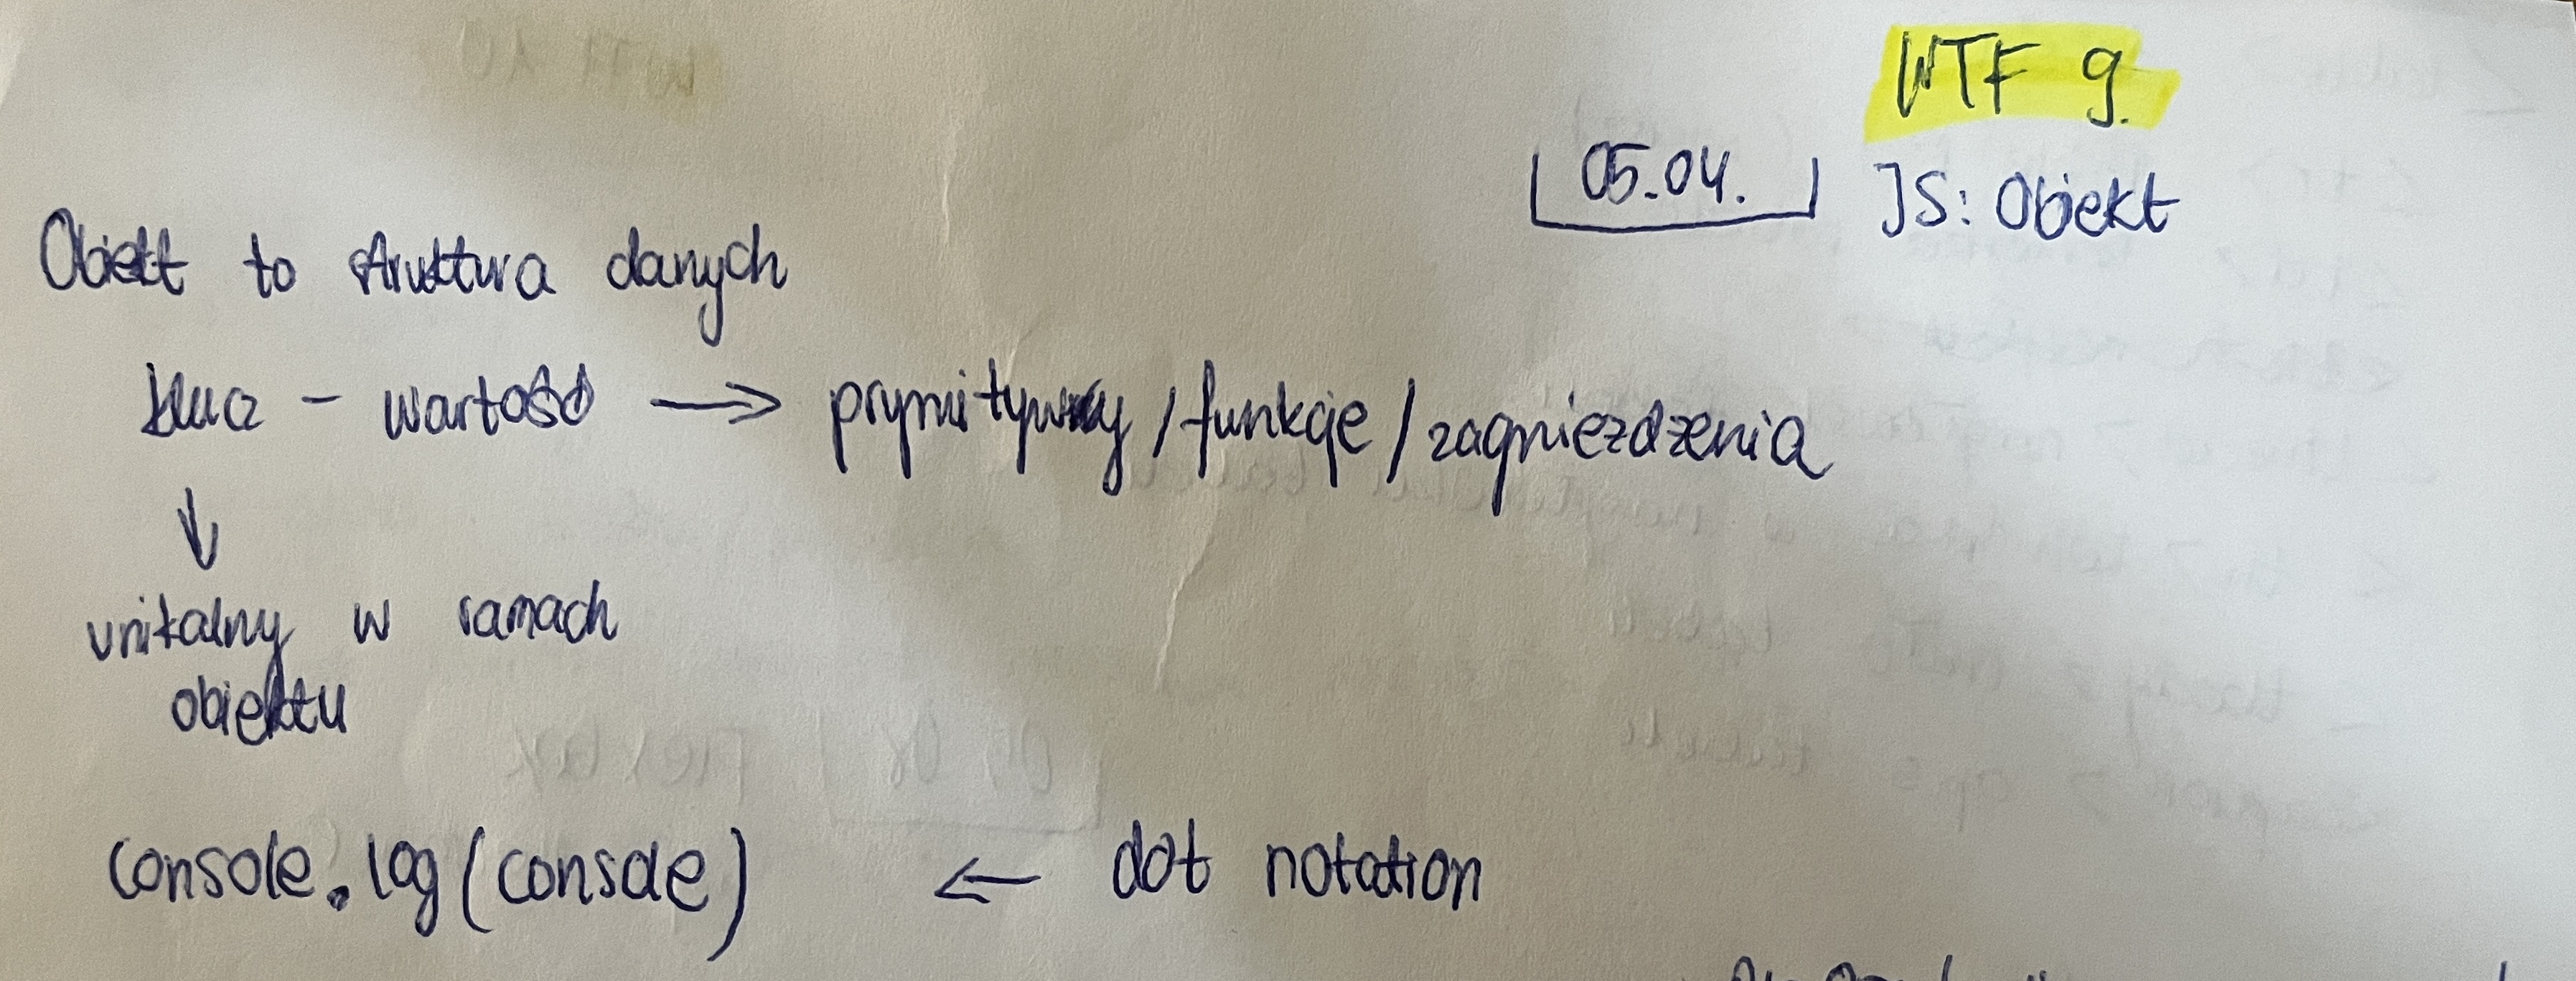 WTF 9.
05.04. JS: Obiekt
Obiekt to struktura danych
klucz - wartość → prymitywy / funkcje / zagniezdzenia
↓
unikalny w ramach
obiektu
console.log(console) ← dot notation